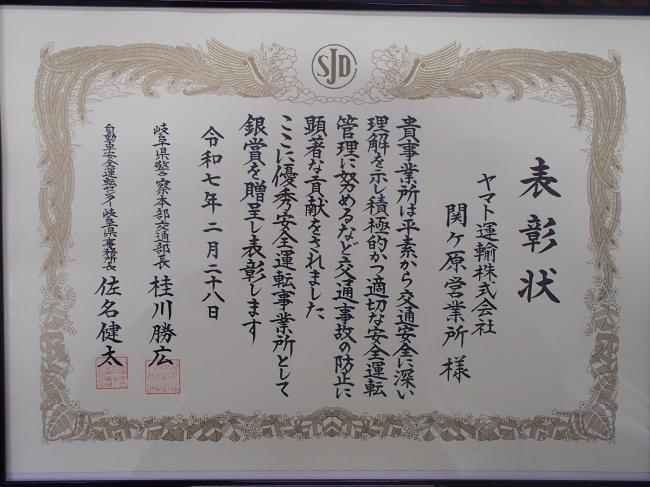 SJD
表彰状
ヤマト運輸株式会社
関ケ原営業所 様
貴事業所は平素から交通安全に深い
理解を示し積極的かつ適切な安全運転
管理に努めるなど交通事故の防止に
顕著な貢献をされました
ここに優秀安全運転事業所として
銀賞を贈呈し表彰します
令和七年二月二十八日
岐阜県警察本部交通部長 桂川勝広
自動車安全運転センター岐阜県事務所長 佐名健太